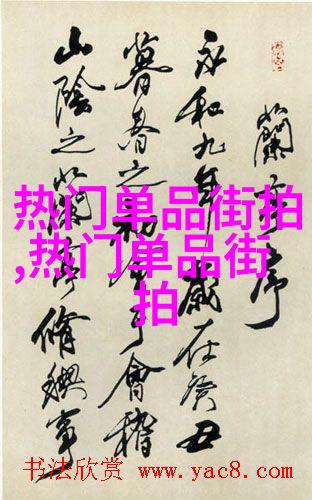 蘭亭序
永和九年歲在癸丑
暮春之初會于會稽
山陰之蘭亭脩禊事
热门单品街拍
,热门单品街
拍
书法欣赏 www.yac8.com